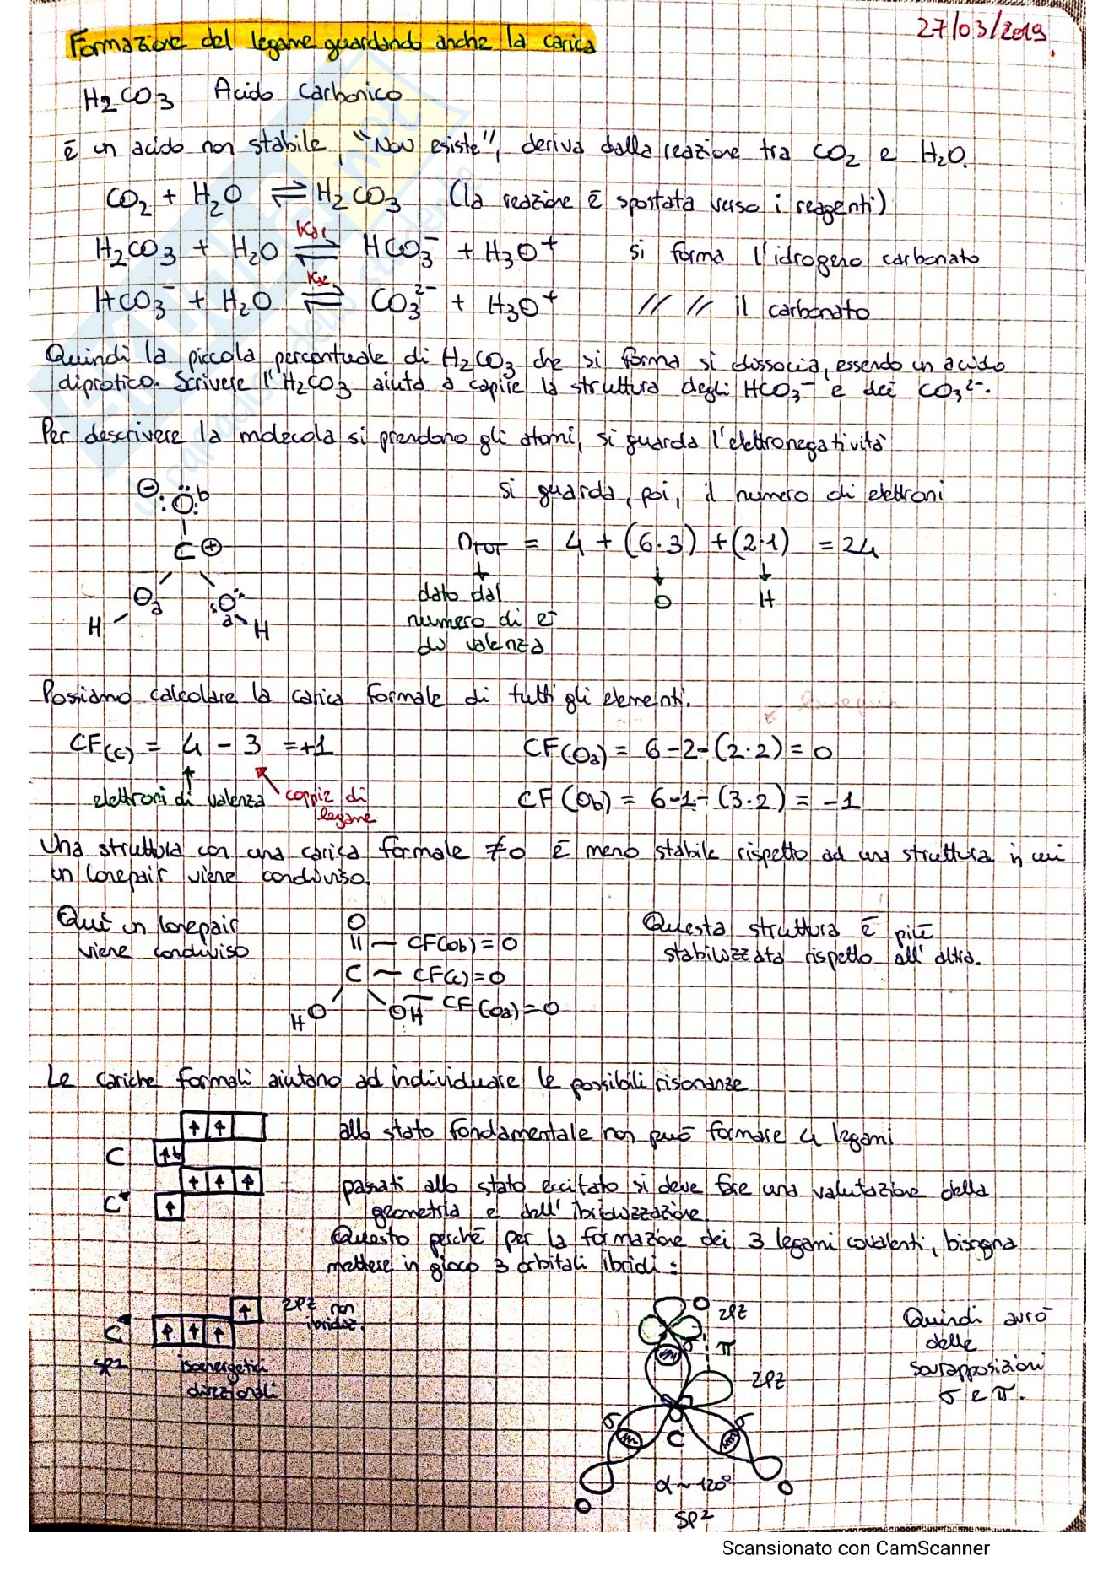 27/03/2019
Formazione del legame guardando anche la carica
H2CO3 Acido carbonico
è un acido non stabile, "Non esiste", deriva dalla reazione tra CO2 e H2O.
CO2 + H2O ⇌ H2CO3 (la reazione è spostata verso i reagenti)
H2CO3 + H2O ⇌ HCO3⁻ + H3O⁺ si forma l'idrogeno carbonato
HCO3⁻ + H2O ⇌ CO3²⁻ + H3O⁺ // // il carbonato
Quindi la piccola percentuale di H2CO3 che si forma si dissocia, essendo un acido
diprotico. Scrivere l'H2CO3 aiuta a capire la struttura degli HCO3⁻ e dei CO3²⁻.
Per descrivere la molecola si prendono gli atomi, si guarda l'elettronegatività
si guarda, poi, il numero di elettroni
⊖ :Ö: b
C ⊕
Oa :O: a
H H
nTOT = 4 + (6·3) + (2·1) = 24
dato dal O H
numero di e⁻
di valenza
Possiamo calcolare la carica formale di tutti gli elementi.
CF(C) = 4 - 3 = +1 CF(Oa) = 6-2-(2·2) = 0
elettroni di valenza coppie di legame CF(Ob) = 6-1-(3·2) = -1
Una struttura con una carica formale ≠0 è meno stabile rispetto ad una struttura in cui
un lonepair viene condiviso.
Qui un lonepair
viene condiviso
O
|| — CF(Ob) = 0
C — CF(C) = 0
HO OH — CF(Oa) = 0
Questa struttura è più
stabilizzata rispetto all'altra.
Le cariche formali aiutano ad individuare le possibili risonanze
C allo stato fondamentale non può formare 4 legami
C* passati allo stato eccitato si deve fare una valutazione della
geometria e dell'ibridizzazione.
Questo perché per la formazione dei 3 legami covalenti, bisogna
mettere in gioco 3 orbitali ibridi:
C* 2pz non
ibridiz.
sp2 isoenergetici
direzionali
O 2pz
σ π
2pz
σ σ
C
α ~ 120°
O O
sp²
Quindi avrò
delle
sovrapposizioni
σ e π.
Scansionato con CamScanner